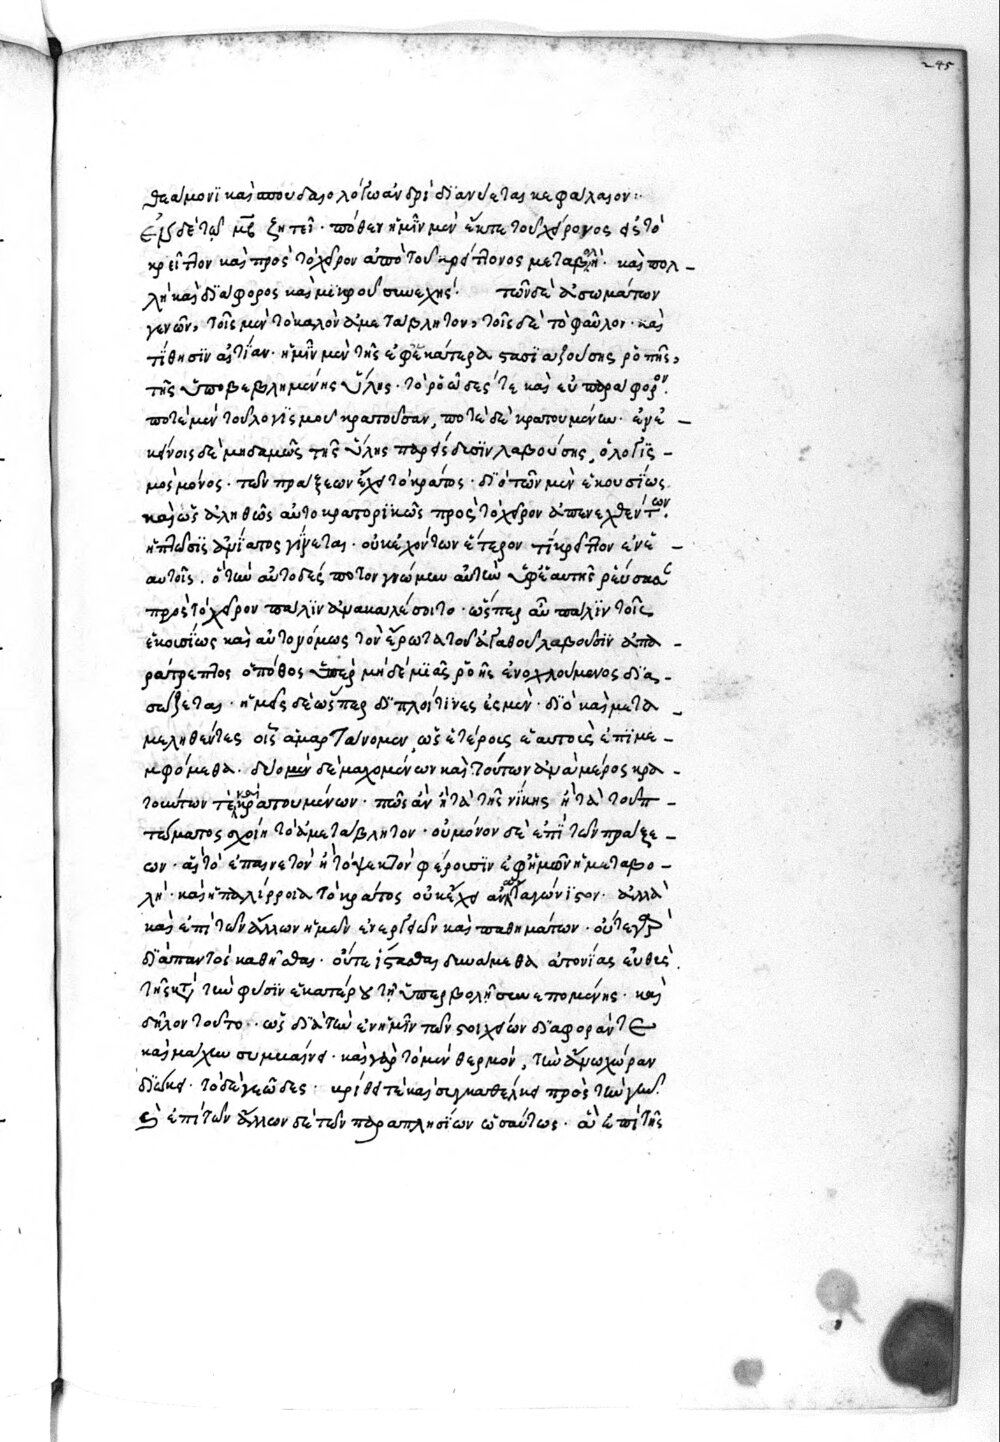 245
θεαίμονϊ καὶ σπουδαίολόγω ἀνδρὶ διανύεται κεφάλαιον:
Ἐν δὲ τῶ μϛ ζητεῖ· πόθεν ἡμῖν μὲν ἔκ τε τοῦ χείρονος εἰς τὸ
κρεῖττον καὶ πρὸς τὸ χεῖρον ἀπὸ τοῦ κρείττονος μεταβολὴ· καὶ πολ-
λὴ καὶ διάφορος καὶ μικροῦ συνεχής· τῶν δὲ ἀσωμάτων
γενῶν, τοῖς μὲν τὸ καλὸν ἀμετάβλητον, τοῖς δὲ τὸ φαῦλον· καὶ
τίθησϊν αἰτίαν· ἡμῖν μὲν τῆς ἐφ' ἑκάτερα στασϊαζούσης ῥοπῆς,
τῆς ὑποβεβλημένης ὕλης· τὸ ῥοῶδες τε καὶ εὐπαράφορον·
ποτὲ μὲν τοῦ λογϊσμοῦ κρατοῦσαν, ποτὲ δὲ κρατουμένων· ἐν ἐ-
κείνοις δὲ μηδαμῶς τῆς ὕλης παρείσδυσϊν λαβούσης, ὁ λογϊσ-
μὸς μόνος· τῶν πράξεων ἔχει τὸ κράτος· διὸ τῶν μὲν ἑκουσίως
καὶ ὡς ἀληθῶς αὐτοκρατορϊκῶς πρὸς τὸ χεῖρον ἀπενεχθέντων·
ἡ πτῶσϊς ἀνίατος γίνεται· οὐκ ἐχόντων ἕτερον τί κρεῖττον ἐν ἑ-
αυτοῖς· ὅ τὴν αὐτοδέσποτον γνώμην αὐτῶν ὑφ' ἑαυτῆς ῥεύσασαν
πρὸς τὸ χεῖρον πάλϊν ἀνακαλέσοιτο· ὥσπερ αὖ πάλϊν τοῖς
ἑκουσίως καὶ αὐτονόμως τὸν ἔρωτα τοῦ ἀγαθοῦ λαβοῦσϊν ἀπα-
ράτρεπτος ὁ πόθος ὑπὲρ μηδεμϊᾶς ῥοῆς ἐνοχλούμενος δϊα-
σώζεται· ἡμεῖς δὲ ὥσπερ δϊπλοῖ τϊνες ἐσμέν· διὸ καὶ μετα-
μεληθέντες οἷς ἁμαρτάνομεν, ὡς ἑτέροις ἑαυτοῖς ἐπϊμε-
μφόμεθα· δυοῖν δὲ μαχομένων καὶ τούτων ἀνὰ μέρος κρα-
τούντων τὲ καὶ κρατουμένων· πῶς ἂν ἢ τὰ τῆς νίκης ἢ τὰ τοῦ π-
τώματος σχοίη τὸ ἀμετάβλητον· οὐ μόνον δὲ ἐπὶ τῶν πράξε-
ων· αἳ τὸ ἐπαινετὸν ἢ τὸ ψεκτὸν φέρουσϊν ἐφ' ἡμῶν ἡ μεταβο-
λὴ· καὶ ἡ παλίρροια τὸ κράτος οὐκ ἔχει ἀνανταγώνϊστον· ἀλλὰ
καὶ ἐπὶ τῶν ἄλλων ἡμῶν ἐνεργειῶν καὶ παθημάτων· οὔτε γὰρ
διαπαντὸς καθῆσθαι· οὔτε ἵστασθαι δυνάμεθα ἀτονίας εὐθὺς
τῆς κατὰ τὴν φύσϊν ἑκατέρου τῆ ὑπερβολῆ συνεπομένης· καὶ
δῆλον τοῦτο· ὡς δϊὰ τὴν ἐν ἡμῖν τῶν στοιχείων διαφοράν τε
καὶ μάχην συμβαίνει· καὶ γὰρ τὸ μὲν θερμὸν, τὴν ἄνω χώραν
διώκει· τὸ δὲ γεῶδες· βρίθει τὲ καὶ συγκαθέλκει πρὸς τὴν γῆν·
καὶ ἐπὶ τῶν ἄλλων δὲ τῶν παραπλησίων ὡσαύτως· ἂν ἐπὶ τῆς